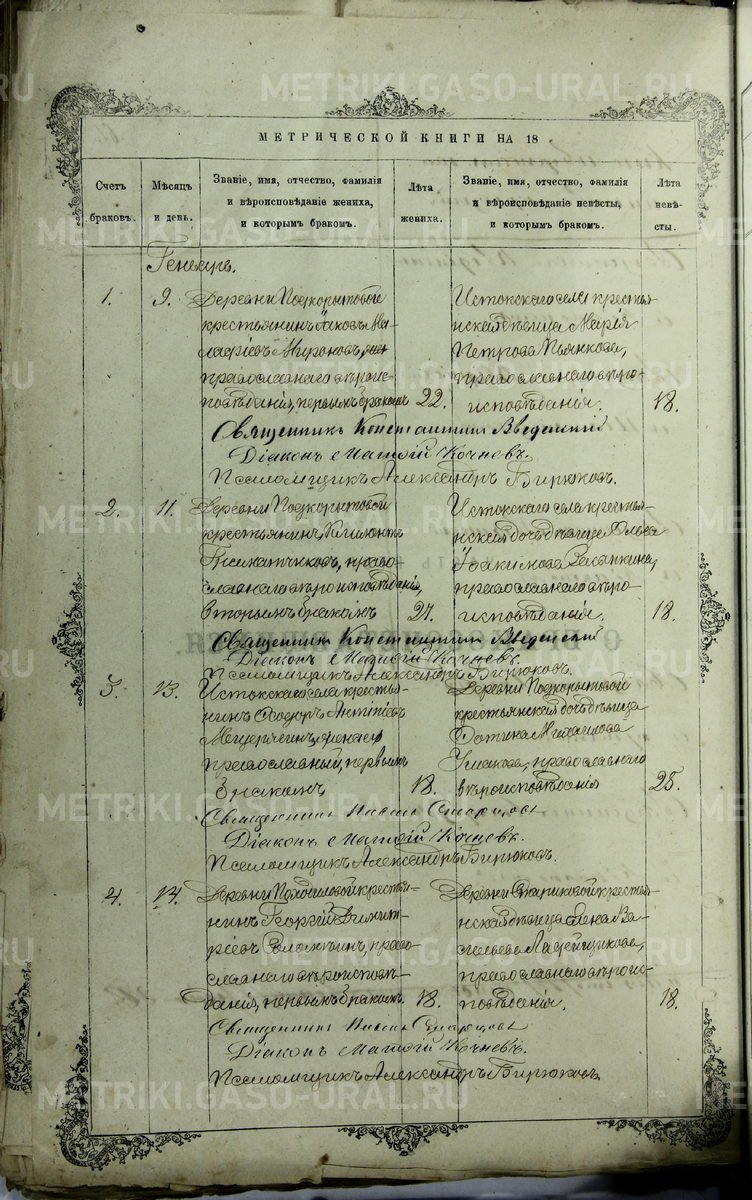 МЕТРИЧЕСКОЙ КНИГИ НА 18
Счетъ браковъ.
Мѣсяцъ и день.
Званіе, имя, отчество, фамилія и вѣроисповѣданіе жениха, и которымъ бракомъ.
Лѣта жениха.
Званіе, имя, отчество, фамилія и вѣроисповѣданіе невѣсты, и которымъ бракомъ.
Лѣта невѣсты.
Генварь.
1. 9.
Деревни Подкорытовой
крестьянинъ Іаковъ
Мироновъ,
православнаго вѣроис-
повѣданія, первымъ бракомъ 22.
Истокскаго села крестья-
нская дѣвица Марія
Петрова Пьянкова,
православнаго вѣро-
исповѣданія. 18.
Священникъ Константинъ Введенскій
Діаконъ Матѳій Кочневъ.
Псаломщикъ Александръ Бирюковъ.
2. 11.
Деревни Подкорытовой
крестьянинъ
право-
славнаго вѣроисповѣданія,
вторымъ бракомъ 27.
Истокскаго села крестья-
нская дочь дѣвица Ольга
Іоакимова
православнаго вѣро-
исповѣданія. 18.
Священникъ Константинъ Введенскій
Діаконъ Матѳій Кочневъ.
Псаломщикъ Александръ Бирюковъ.
3. 13.
Истокскаго села крестья-
нинъ Ѳеодоръ Антипіевъ
православный, первымъ
бракомъ 18.
Деревни Подкорытовой
крестьянская дочь дѣвица
Фотина Михаилова
Ушакова, православнаго
вѣроисповѣданія 25.
Священникъ Старцовъ
Діаконъ Матѳій Кочневъ.
Псаломщикъ Александръ Бирюковъ.
4. 14.
Деревни крестья-
нинъ Георгій Димит-
ріевъ право-
славнаго вѣроисповѣ-
данія, первымъ бракомъ 18.
Деревни крестья-
нская дѣвица Елена Ва-
сильева
православнаго вѣроис-
повѣданія. 18.
Священникъ Старцовъ
Діаконъ Матѳій Кочневъ.
Псаломщикъ Александръ Бирюковъ.
METRIKI.GASO-URAL.RU